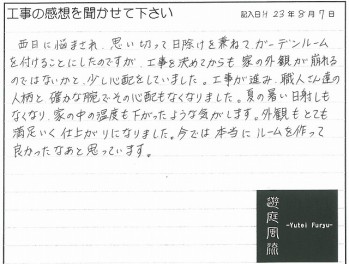 工事の感想を聞かせて下さい 記入日H 23年8月7日
西日に悩まされ、思い切って日除けを兼ねて、ガーデンルーム
を付けることにしたのですが、工事を決めてからも 家の外観が崩れる
のではないかと、少し心配をしていました。工事が進み、職人さん達の
人柄と 確かな腕でその心配もなくなりました。夏の暑い日射しも
なくなり、家の中の温度も下がったような気がします。外観もとても
満足いく 仕上がりになりました。今では 本当に ルームを作って
良かったなあと 思っています。
遊庭風流
-Yutei Furyu-